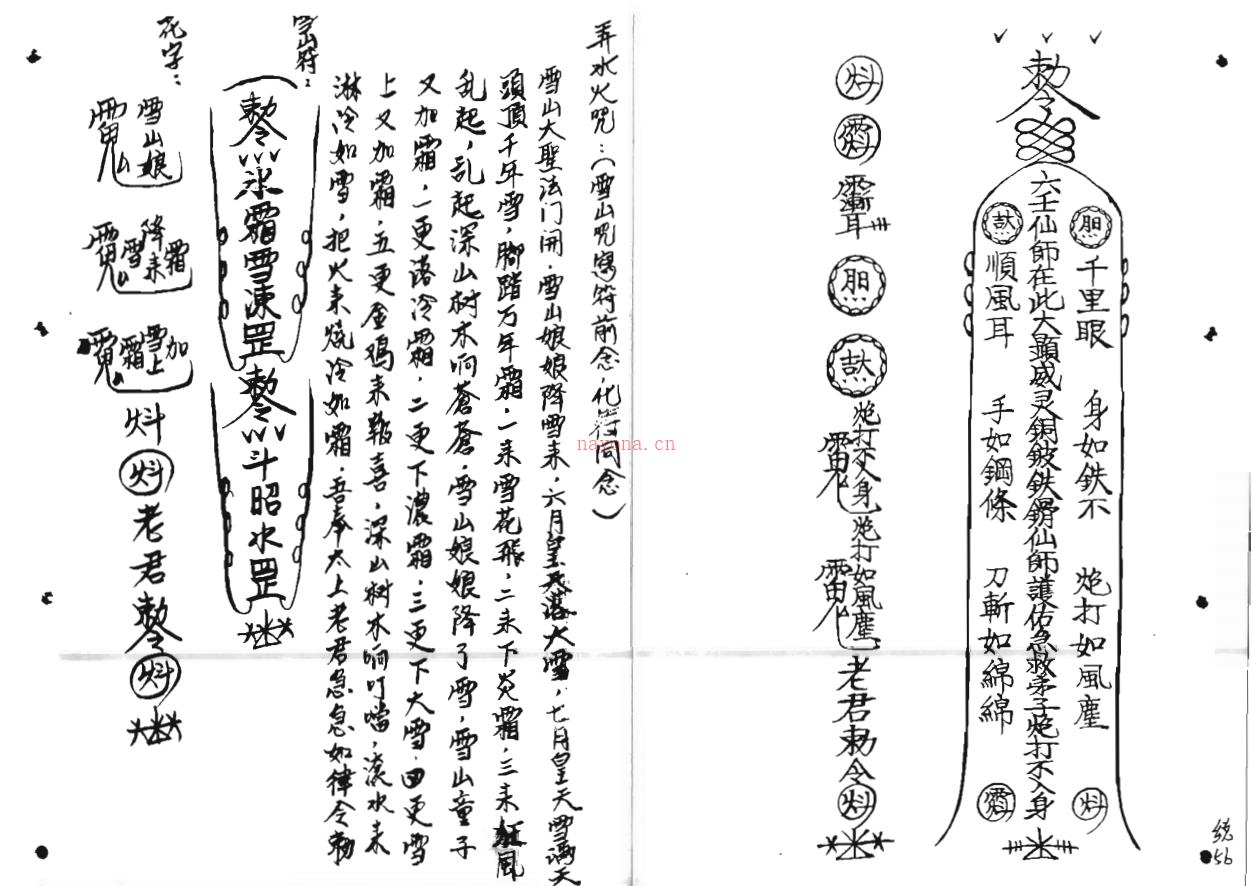 勅令
六壬仙師在此大顯威灵銅鈹鉄鎖仙師護佑急救弟子炮打不入身
千里眼 身如鉄不 炮打如風塵
順風耳 手如鋼條 刀斬如綿綿
炮打不入身
炮打如風塵
老君勅令
統56
弄水火咒：（雪山咒寫符前念化符同念）
雪山大聖法门開．雪山娘娘降雪来，六月皇天落大雪，七月皇天雪满天
頭頂千年雪，腳踏万年霜，一来雪花飛，二来下炎霜，三来狂風
乱起，乱起深山树木响蒼蒼，雪山娘娘降了雪，雪山童子
又加霜，一更落冷霜，二更下濃霜，三更下大雪，四更雪
上又加霜，五更金鸡来報喜，深山树木响叮噹，滚水来
淋冷如雪，把火来燒冷如霜，吾奉太上老君急急如律令勅
雪山符：
勅令 氷霜雪凍罡 勅令 斗昭水罡
花字：
雪山娘
降霜雪来
雪上加霜
老君勅令
nayona.cn